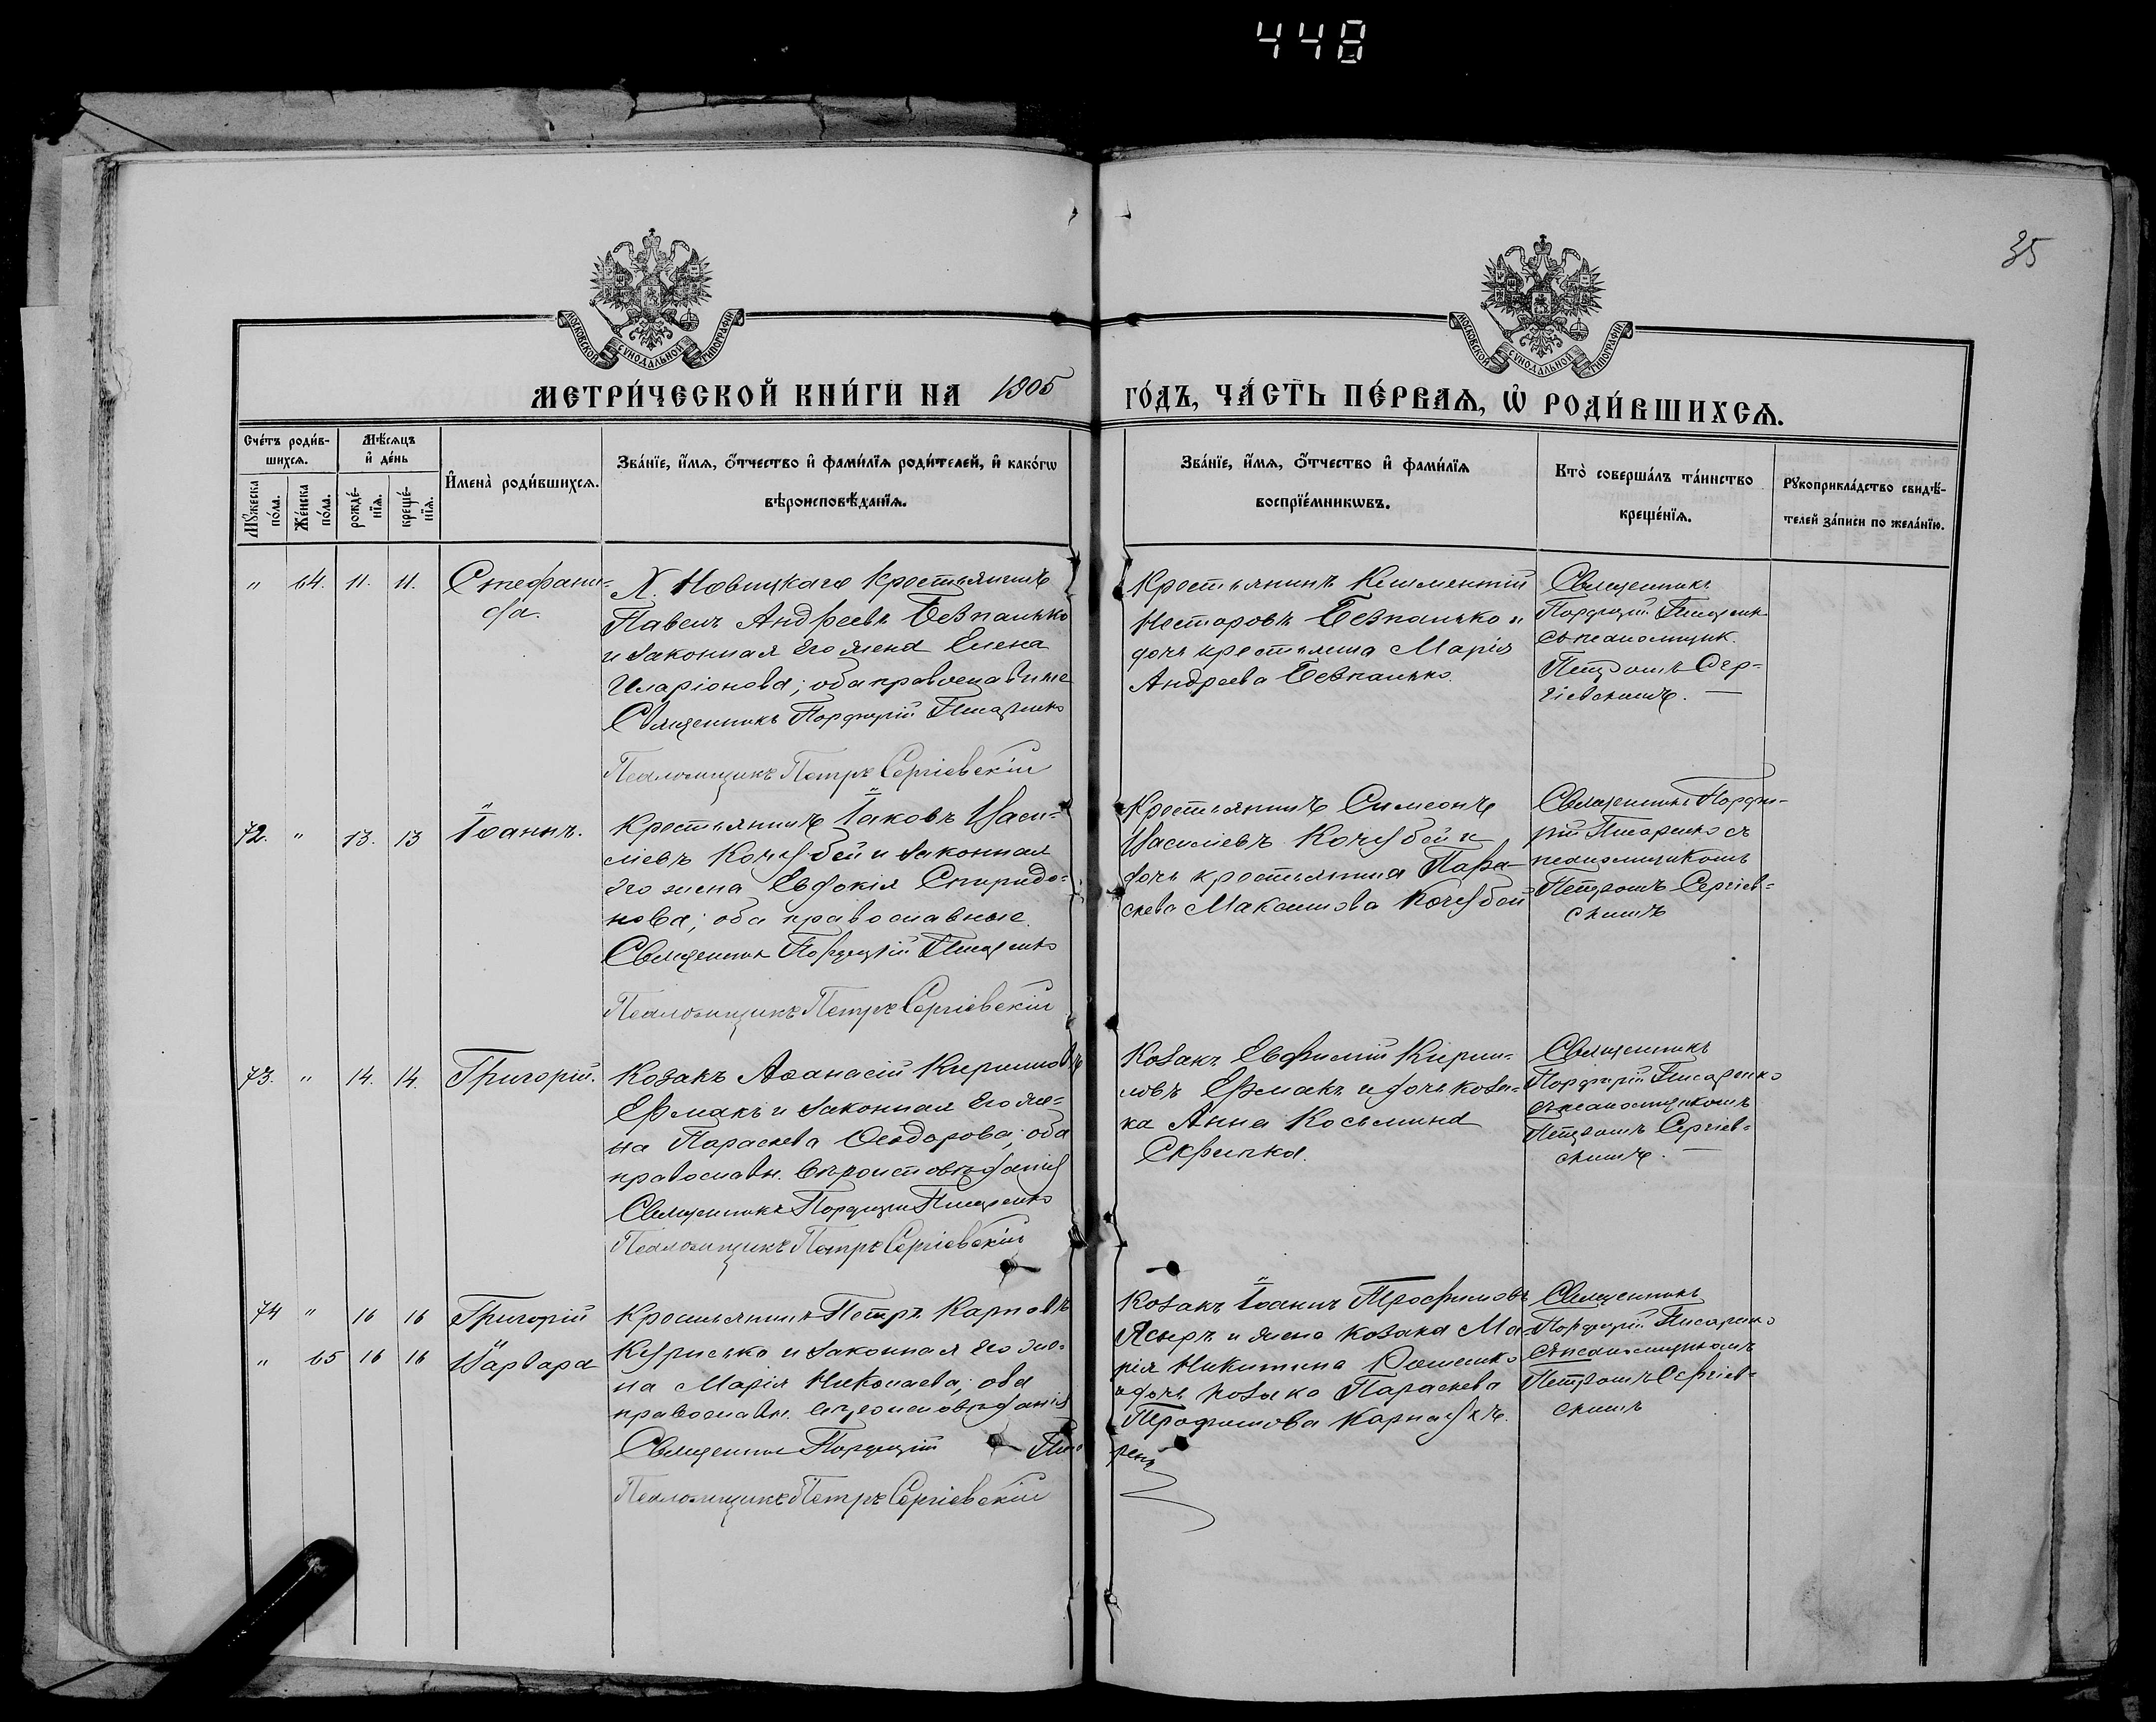 448
35
МОСКОВСКОЙ СѴНОДАЛЬНОЙ ТИПОГРАФІИ
МОСКОВСКОЙ СѴНОДАЛЬНОЙ ТИПОГРАФІИ
МЕТРИ́ЧЕСКОЙ КНИ́ГИ НА 1905 ГО́ДЪ, ЧА́СТЬ ПЕ́РВАѦ, Ѡ҆ РОДИ́ВШИХСѦ.
Сче́тъ роди́в-
шихсѧ.
Мѣ́сѧцъ
и҆ де́нь
Мꙋ́жеска
по́ла.
Же́нска
по́ла.
рожде́-
нїѧ.
креще́-
нїѧ.
И҆мена̀ роди́вшихсѧ.
Зва́нїе, и҆́мѧ, ѻ҆́тчество и҆ фами́лїѧ роди́телей, и҆ како́гѡ
вѣроисповѣ́данїѧ.
Зва́нїе, и҆́мѧ, ѻ҆́тчество и҆ фами́лїѧ
воспрїе́мникѡвъ.
Кто̀ соверша́лъ та́инство
креще́нїѧ.
Рꙋкоприкла́дство свидѣ́-
телей за́писи по жела́нїю.
" 64. 11. 11. Стефани-
да.
Х. Новицкаго Крестьянинъ
Павелъ Андреевъ Безпалько
и законная его жена Елена
Иларіонова; оба православные
Священникъ Порфирій Писаренко
Псаломщикъ Петръ Сергіевскій
Крестьянинъ Климентій
Несторовъ Безпалько и
дочь крестьянина Марія
Андреева Безпалько.
Священникъ
Порфирій Писаренк
съ псаломщик.
Петромъ Сер-
гіевскимъ. —
72. " 13. 13 Іоаннъ.
Крестьянинъ Іаковъ Васи-
ліевъ Кочубей и законная
его жена Евдокія Спиридо-
нова; оба православные.
Священник Порфирій Писаренко
Псаломщикъ Петръ Сергіевскій
Крестьянинъ Симеонъ
Василіевъ Кочубей и
дочь крестьянина Пара-
скева Максимова Кочубей
Священникъ Порфи-
рій Писаренко съ
псаломщикомъ
Петромъ Сергіев-
скимъ
73. " 14. 14. Григорій.
Козакъ Аѳанасій Кирилловъ
Ермакъ и законная его же-
на Параскева Ѳеодорова; оба
православн. вѣроисповѣданія
Священникъ Порфирій Писаренко
Псаломщикъ Петръ Сергіевскій
Козакъ Евфимій Кирил-
ловъ Ермакъ и дочь коза-
ка Анна Косьмина
Скрипка.
Священникъ
Порфирій Писаренко
съ псаломщикомъ
Петромъ Сергіев-
скимъ. —
74 " 16 16 Григорій
" 65 16 16 Варвара
Крестьянинъ Петръ Карповъ
и законная его же-
на Марія Николаева; оба
православн. вѣроисповѣданія
Священник Порфирій Писаренк
Псаломщикъ Петръ Сергіевскій
Козакъ Іоаннъ Трофимовъ
и жена козака Ма-
рія Никитина
и дочь козака Параскева
Трофимова
Священникъ
Порфирій Писаренко
съ псаломщикомъ
Петромъ Сергіев-
скимъ